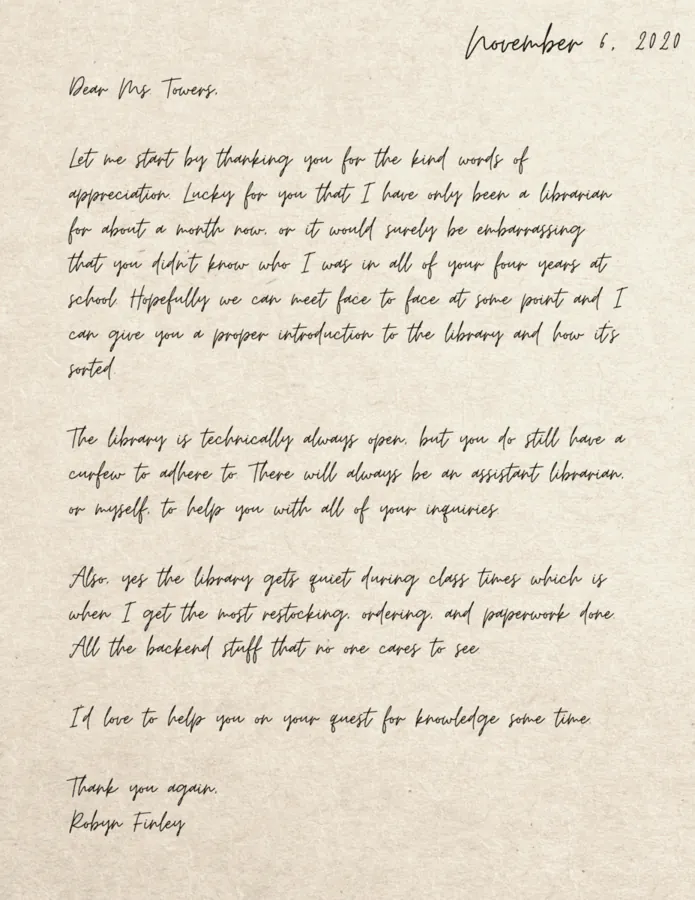 November 6, 2020
Dear Ms. Towers,
Let me start by thanking you for the kind words of
appreciation. Lucky for you that I have only been a librarian
for about a month now, or it would surely be embarrassing
that you didn't know who I was in all of your four years at
school. Hopefully we can meet face to face at some point and I
can give you a proper introduction to the library and how it's
sorted.
The library is technically always open, but you do still have a
curfew to adhere to. There will always be an assistant librarian,
or myself, to help you with all of your inquiries.
Also, yes the library gets quiet during class times which is
when I get the most restocking, ordering, and paperwork done.
All the backend stuff that no one cares to see.
I'd love to help you on your quest for knowledge some time.
Thank you again,
Robyn Finley